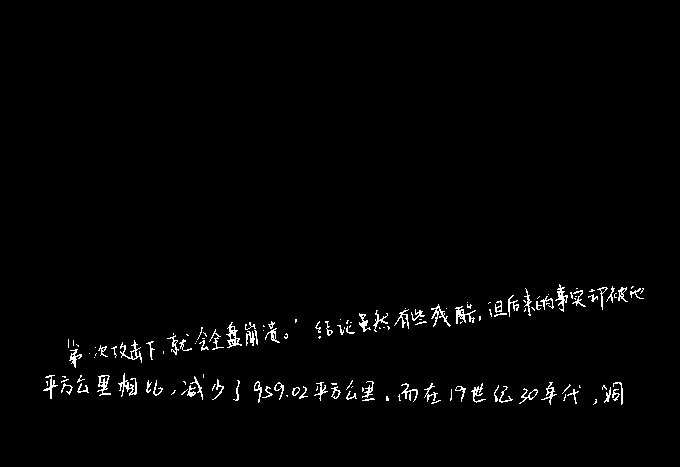 第一次攻击下，就会全盘崩溃。”结论虽然有些残酷，但后来的事实却被他
平方公里相比，减少了959.02平方公里。而在19世纪30年代，洞